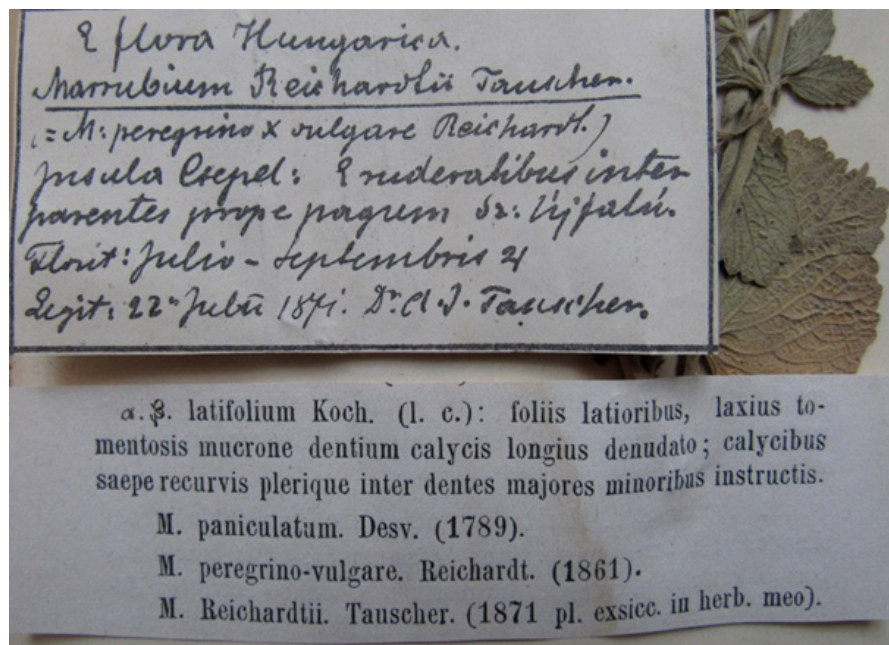 E flora Hungarica.
Marrubium Reichardtii Tauscher.
(= M: peregrino x vulgare Reichardt.)
Insula Csepel: E ruderatibus inter
parentes prope pagum Sz: Újfalú.
Florit: Julio - Septembris ♃
Legit: 22n Julii 1871. Dr. A. J. Tauscher.
a. β. latifolium Koch. (l. c.): foliis latioribus, laxius to-
mentosis mucrone dentium calycis longius denudato; calycibus
saepe recurvis plerique inter dentes majores minoribus instructis.
M. paniculatum. Desv. (1789).
M. peregrino-vulgare. Reichardt. (1861).
M. Reichardtii. Tauscher. (1871 pl. exsicc. in herb. meo).